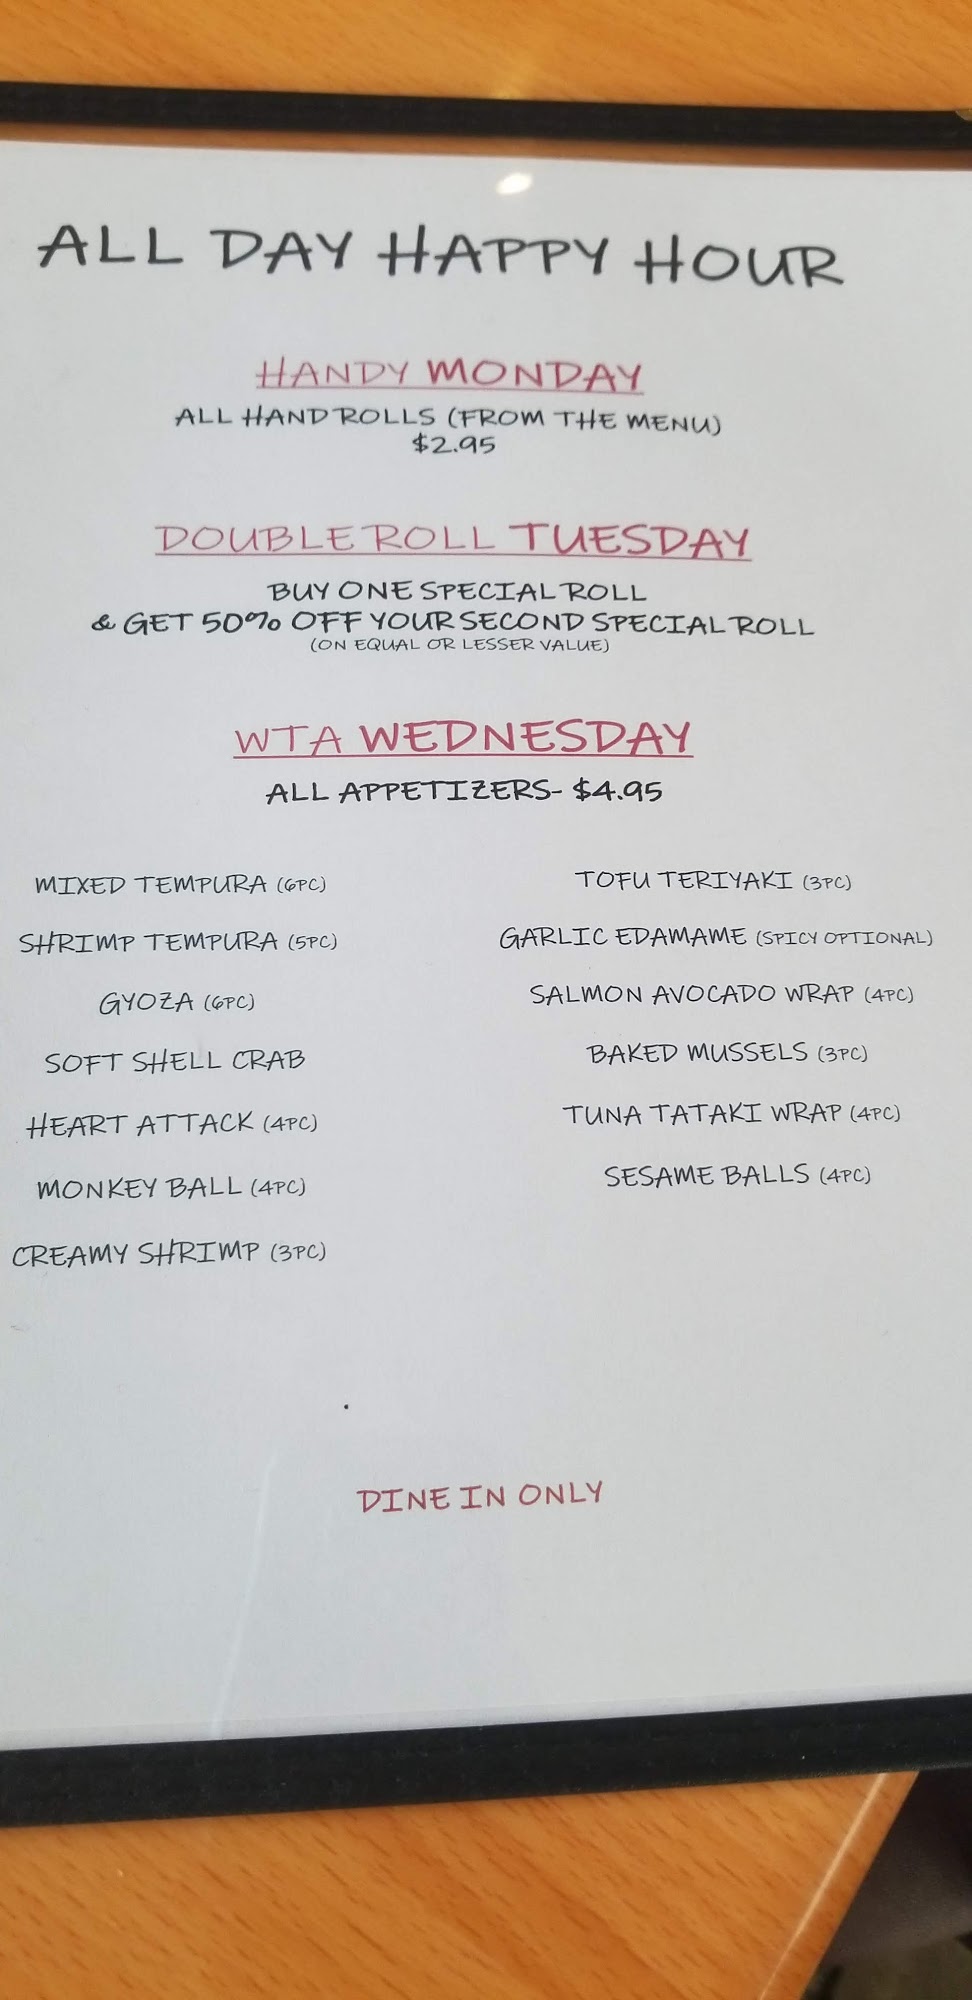 ALL DAY HAPPY HOUR
HANDY MONDAY
ALL HAND ROLLS (FROM THE MENU)
$2.95
DOUBLE ROLL TUESDAY
BUY ONE SPECIAL ROLL
& GET 50% OFF YOUR SECOND SPECIAL ROLL
(ON EQUAL OR LESSER VALUE)
WTA WEDNESDAY
ALL APPETIZERS- $4.95
MIXED TEMPURA (6PC)
SHRIMP TEMPURA (5PC)
GYOZA (6PC)
SOFT SHELL CRAB
HEART ATTACK (4PC)
MONKEY BALL (4PC)
CREAMY SHRIMP (3PC)
TOFU TERIYAKI (3PC)
GARLIC EDAMAME (SPICY OPTIONAL)
SALMON AVOCADO WRAP (4PC)
BAKED MUSSELS (3PC)
TUNA TATAKI WRAP (4PC)
SESAME BALLS (4PC)
DINE IN ONLY